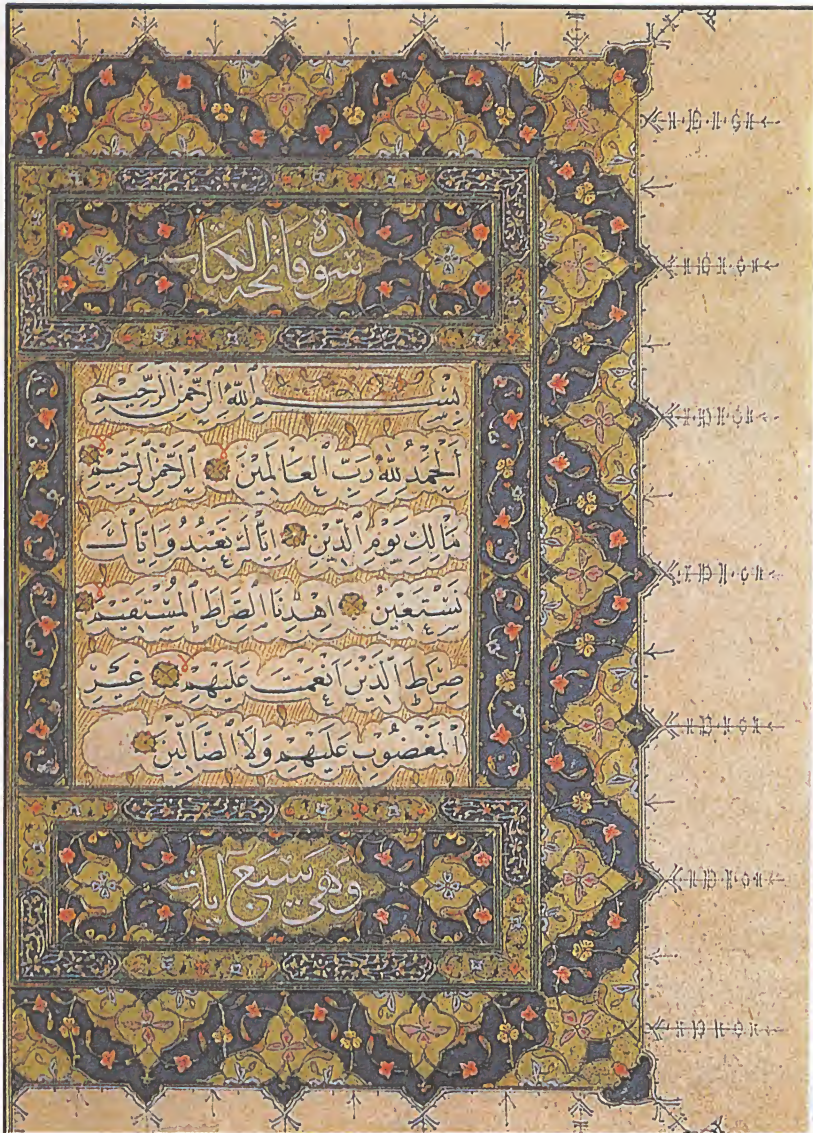 سورة فاتحة الكتاب
بِسْمِ ٱللهِ ٱلرَّحْمٰنِ ٱلرَّحِيْمِ
اَلْحَمْدُ لِلّٰهِ رَبِّ ٱلْعَالَمِيْنَ ٱلرَّحْمٰنِ ٱلرَّحِيْمِ
مَالِكِ يَوْمِ ٱلدِّيْنِ اِيَّاكَ نَعْبُدُ وَاِيَّاكَ
نَسْتَعِيْنُ اِهْدِنَا ٱلصِّرَاطَ ٱلْمُسْتَقِيْمَ
صِرَاطَ ٱلَّذِيْنَ اَنْعَمْتَ عَلَيْهِمْ غَيْرِ
ٱلْمَغْضُوْبِ عَلَيْهِمْ وَلَا ٱلضَّالِّيْنَ
وهي سبع آيات